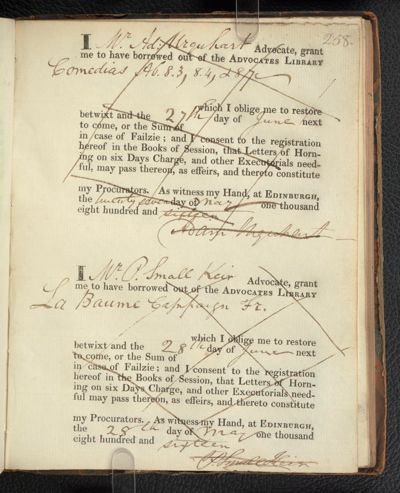 258.
I Mr. Ad. Urquhart Advocate, grant
me to have borrowed out of the ADVOCATES LIBRARY
Comedias Ab. 8.3, 8.4, &
which I oblige me to restore
betwixt and the 27th day of June next
to come, or the Sum of
in case of Failzie; and I consent to the registration
hereof in the Books of Session, that Letters of Horn-
ing on six Days Charge, and other Executorials need-
ful, may pass thereon, as effeirs, and thereto constitute
my Procurators. As witness my Hand, at EDINBURGH,
the twenty seven day of May one thousand
eight hundred and sixteen
Adam Urquhart
I Mr. P. Small Keir Advocate, grant
me to have borrowed out of the ADVOCATES LIBRARY
La Baume Campaign Fr.
which I oblige me to restore
betwixt and the 28th day of June next
to come, or the Sum of
in case of Failzie; and I consent to the registration
hereof in the Books of Session, that Letters of Horn-
ing on six Days Charge, and other Executorials need-
ful may pass thereon, as effeirs, and thereto constitute
my Procurators. As witness my Hand, at EDINBURGH,
the 28th day of May one thousand
eight hundred and sixteen
P. Small Keir